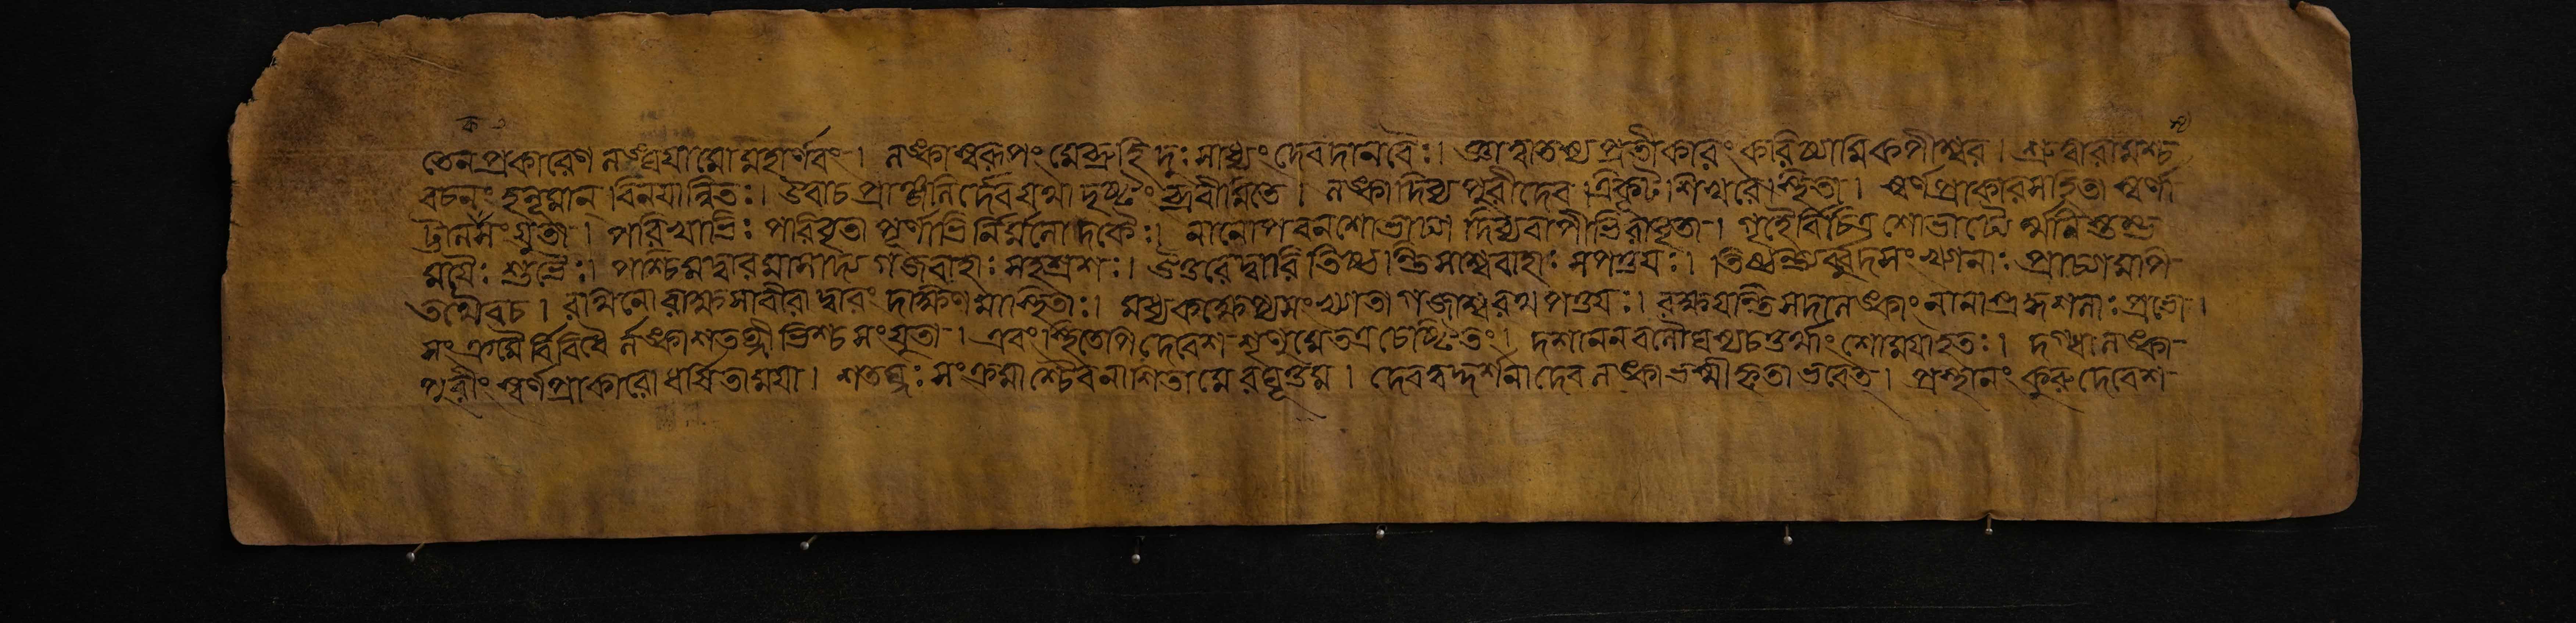 কেনপ্রকারেণ লঙ্ঘয়ামোমহার্ণবং । লঙ্কাস্বরূপং মেব্রূহি দুঃসাধ্যংদেবদানবৈঃ। জ্ঞাত্বাতস্য প্রতীকারং করিষ্যামিকপীশ্বর । শ্রুত্বারামস্য
বচনংহনূমান্ বিনয়ান্বিতঃ। উবাচ প্রাঞ্জলির্দেবযথা দৃষ্টং ব্রবীমিতে । লঙ্কাদিব্যপুরীদেব ত্রিকূটশিখরে স্থিতা । স্বর্ণপ্রাকারসহিতা স্বর্ণা
ট্টালসংযুতা । পরিখাভিঃ পরিবৃতা পূর্ণাভির্নির্মলোদকৈঃ। নানোপবনশোভাঢ্যা দিব্যবাপীভিরাবৃতা । গৃহৈর্বিচিত্রশোভাঢ্যৈর্মণিস্তম্ভ
ময়ৈঃ শুভৈঃ। পশ্চিমদ্বারমাসাদ্য গজবাহাঃ সহস্রশঃ। উত্তরেদ্বারি তিষ্ঠন্তিসাশ্ববাহাঃ সপত্তয়ঃ। তিষ্ঠন্ত্যর্ব্বুদসংখ্যগনাঃ প্রাচ্যামপি
তথৈবচ । রক্ষিণোরাক্ষসাবীরা দ্বারং দক্ষিণমাস্থিতাঃ। মধ্যকক্ষেপ্যসংখ্যাতা গজাশ্বরথপত্তয়ঃ। রক্ষয়ন্তিসদালঙ্কাং নানাস্ত্রকুশলাঃ প্রভো ।
সংক্রমৈর্বিবিধৈ র্লঙ্কাশতঘ্নীভিশ্চ সংযুতা । এবংস্থিতেপিদেবেশ শৃণুমেতত্রচেষ্টিতং। দশাননবলৌঘস্যচতুর্থাংশোময়াহতঃ। দগ্ধালঙ্কা
পুরীং স্বর্ণপ্রাকারো ধর্ষিতাময়া । শতঘ্ন্যঃ সংক্রমাশ্চৈবনাশিতামেরঘূত্তম । দেবত্বদ্দর্শনাদেবলঙ্কাভস্মীকৃতাভবেত্ । প্রস্থানং কুরুদেবেশ